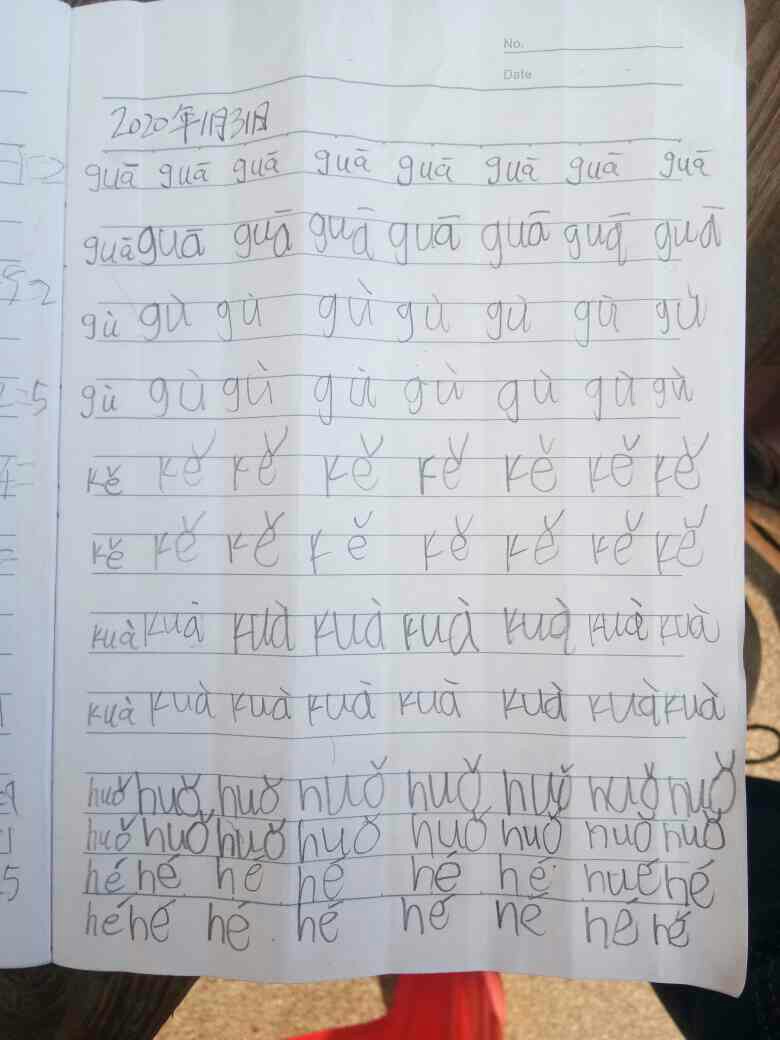 No.
Date
2020年1月31日
guā guā guā guā guā guā guā guā
guā guā guā guā guā guā guā guā
gù gù gù gù gù gù gù gù
gù gù gù gù gù gù gù gù
kě kě kě kě kě kě kě kě
kě kě kě kě kě kě kě kě
kuà kuà kuà kuà kuà kuà kuà kuà
kuà kuà kuà kuà kuà kuà kuà kuà
huǒ huǒ huǒ huǒ huǒ huǒ huǒ huǒ
huǒ huǒ huǒ huǒ huǒ huǒ huǒ huǒ
hé hé hé hé hé hé hué hé
hé hé hé hé hé hé hé hé